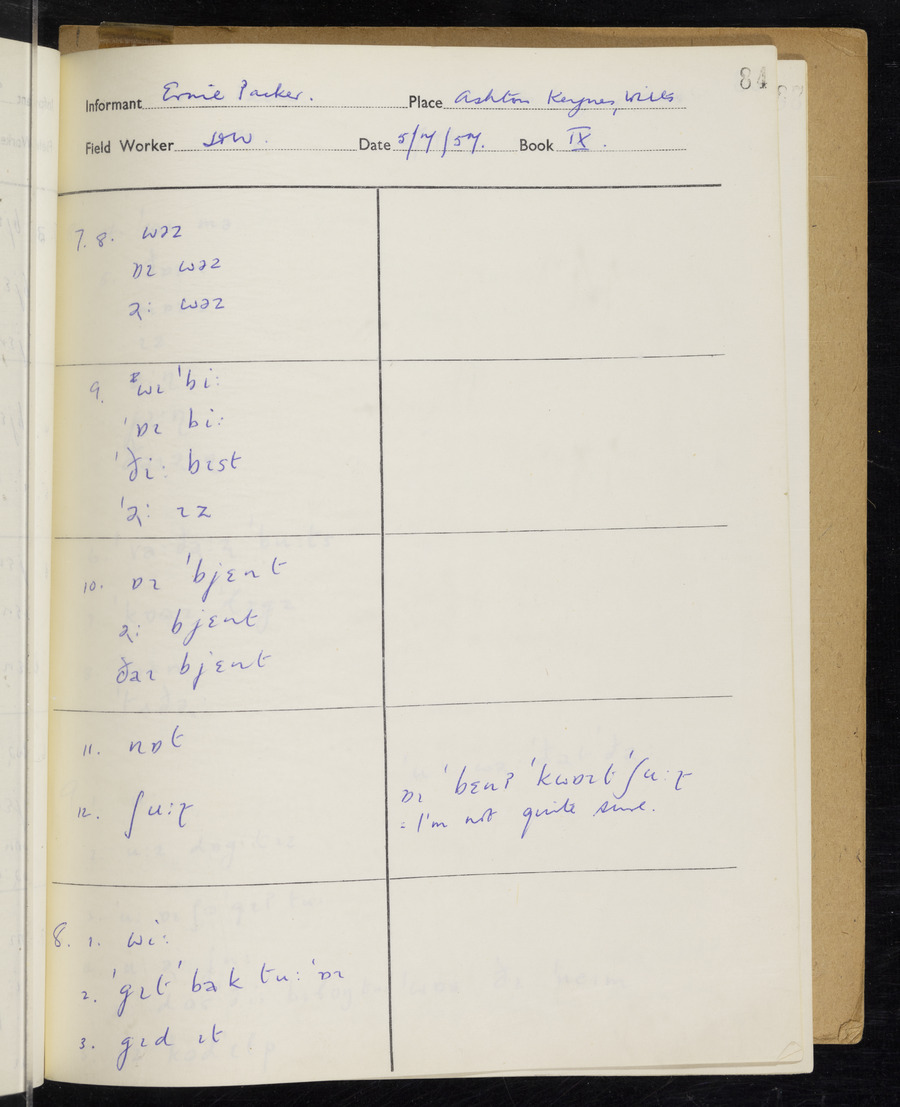 84
Informant Ernie Packer. Place Ashton Keynes, Wilts
Field Worker Date 5/7/57. Book IX.
7. 8. wəz
ɒɪ wəz
əː wəz
9. wɪ 'biː
'ɒɪ biː
'ðiː bɪst
'əː ɪz
10. ɒɪ 'bjɛnt
əː bjɛnt
ðaɪ bjɛnt
11. nɒt
12. ʃuːɽ
ɒɪ 'bɛnʔ 'kwɒɪt 'ʃuːɽ
= I'm not quite sure.
8. 1. wiː
2. 'gɪt 'bak tuː 'ɒɪ
3. gɪd ɪt